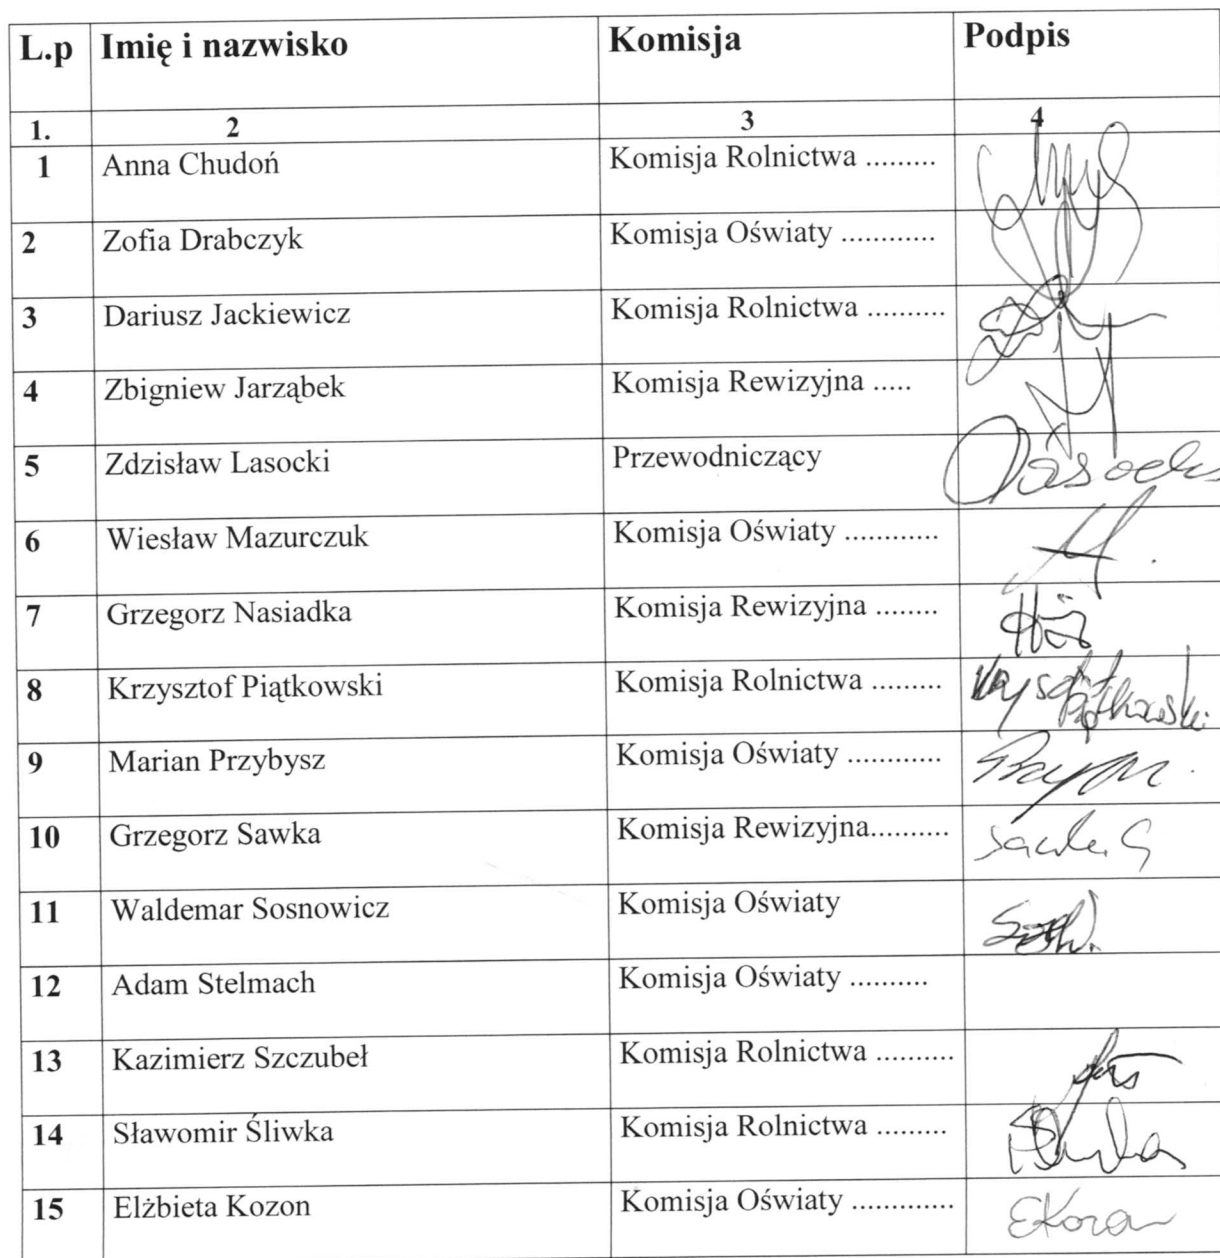 L.p Imię i nazwisko Komisja Podpis
1. 2 3 4
1 Anna Chudoń Komisja Rolnictwa .........
2 Zofia Drabczyk Komisja Oświaty ............
3 Dariusz Jackiewicz Komisja Rolnictwa ..........
4 Zbigniew Jarząbek Komisja Rewizyjna .....
5 Zdzisław Lasocki Przewodniczący
6 Wiesław Mazurczuk Komisja Oświaty ............
7 Grzegorz Nasiadka Komisja Rewizyjna ........
8 Krzysztof Piątkowski Komisja Rolnictwa .........
9 Marian Przybysz Komisja Oświaty ............
10 Grzegorz Sawka Komisja Rewizyjna..........
11 Waldemar Sosnowicz Komisja Oświaty
12 Adam Stelmach Komisja Oświaty ..........
13 Kazimierz Szczubeł Komisja Rolnictwa ..........
14 Sławomir Śliwka Komisja Rolnictwa .........
15 Elżbieta Kozon Komisja Oświaty .............